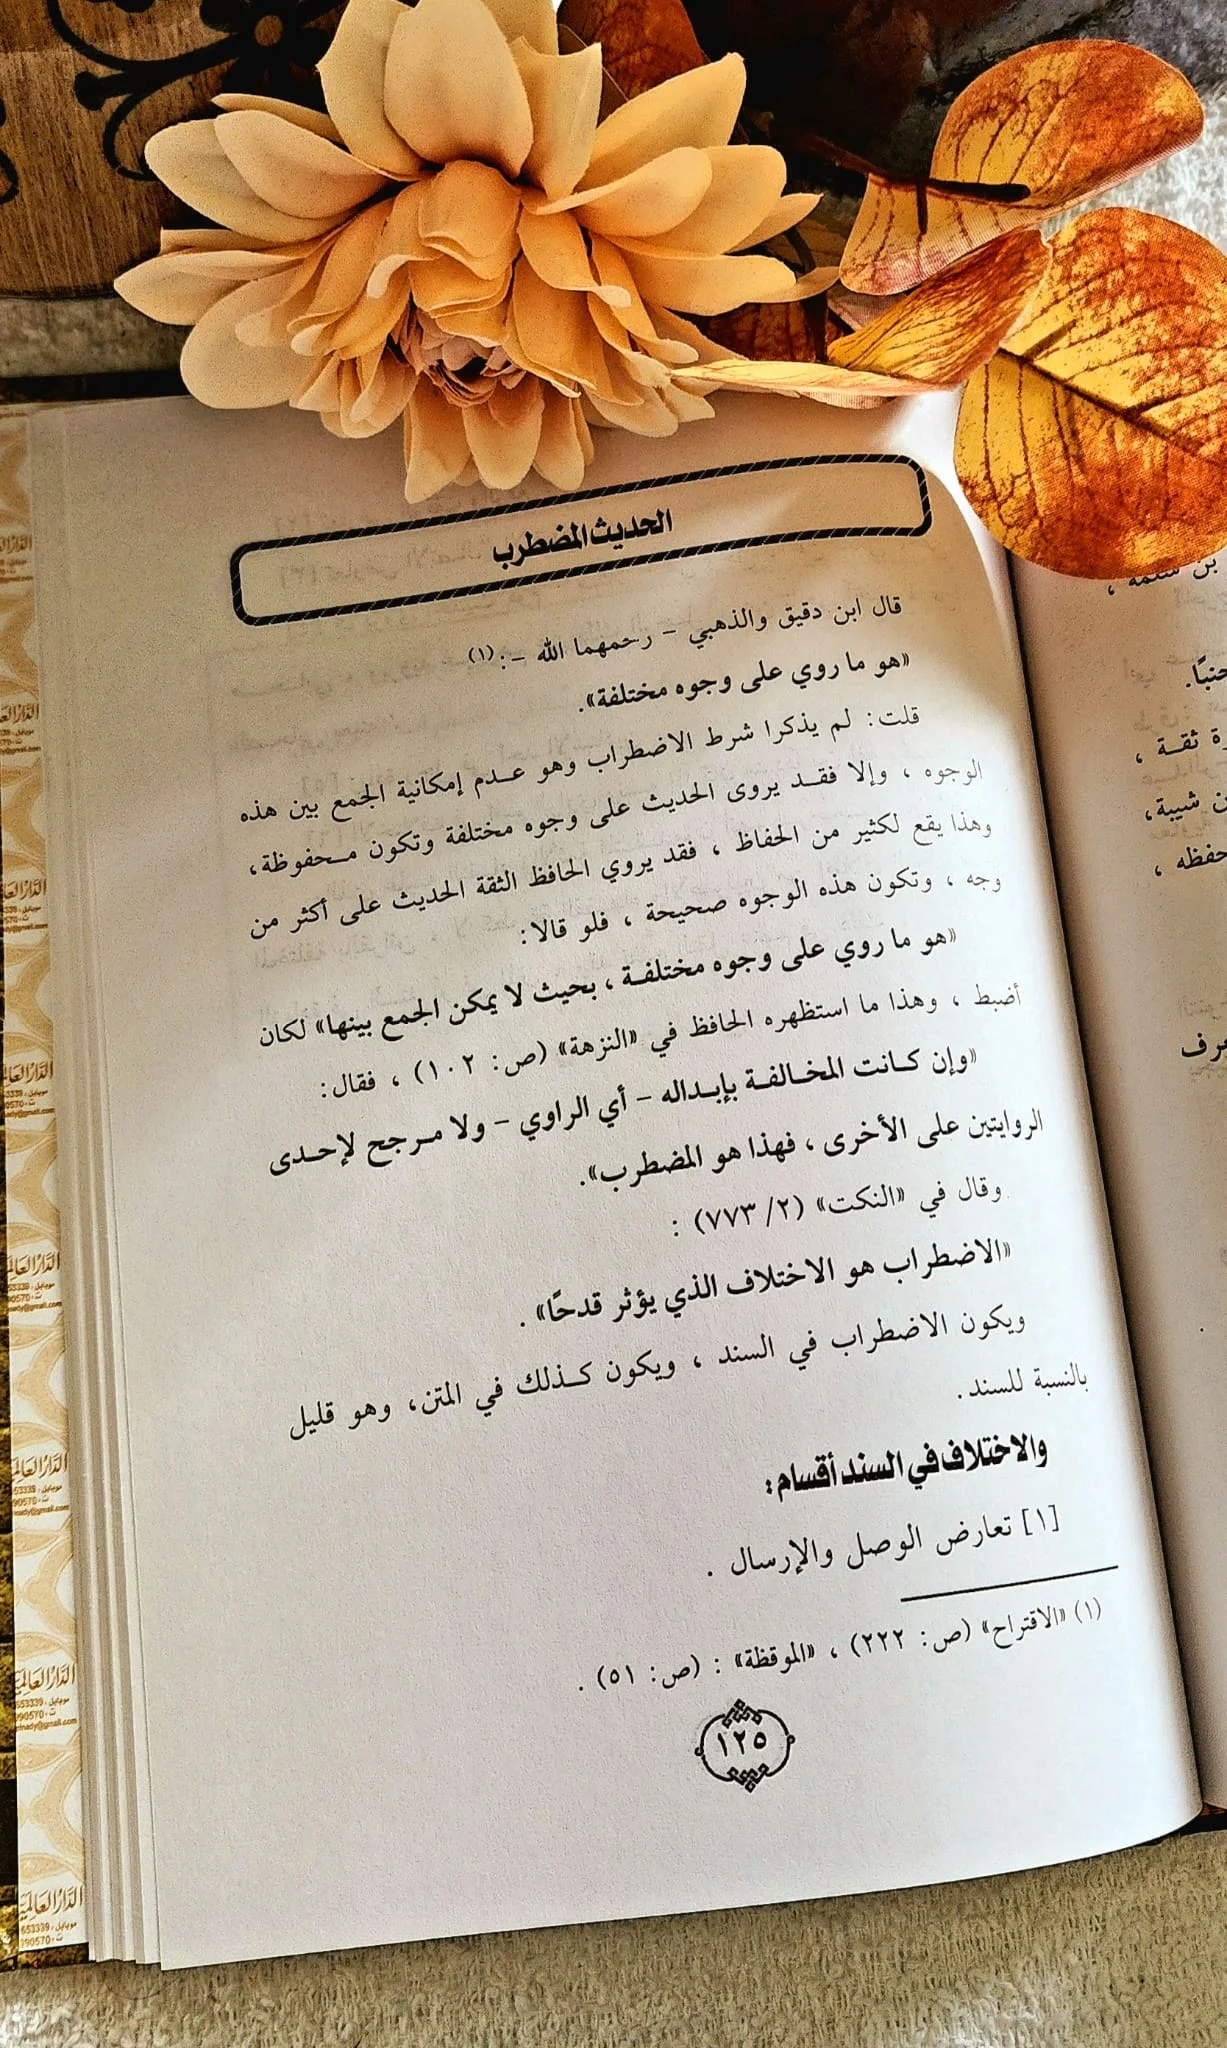 الحديث المضطرب
قال ابن دقيق والذهبي – رحمهما الله –: (١)
«هو ما روي على وجوه مختلفة».
قلت: لم يذكرا شرط الاضطراب وهو عدم إمكانية الجمع بين هذه
الوجوه ، وإلا فقد يروى الحديث على وجوه مختلفة وتكون محفوظة،
وهذا يقع لكثير من الحفاظ ، فقد يروي الحافظ الثقة الحديث على أكثر من
وجه ، وتكون هذه الوجوه صحيحة ، فلو قالا:
«هو ما روي على وجوه مختلفة ، بحيث لا يمكن الجمع بينها» لكان
أضبط ، وهذا ما استظهره الحافظ في «النزهة» (ص: ١٠٢) ، فقال:
«وإن كانت المخالفة بإبداله – أي الراوي – ولا مرجح لإحدى
الروايتين على الأخرى ، فهذا هو المضطرب».
وقال في «النكت» (٢/ ٧٧٣) :
«الاضطراب هو الاختلاف الذي يؤثر قدحًا» .
ويكون الاضطراب في السند ، ويكون كذلك في المتن، وهو قليل
بالنسبة للسند .
والاختلاف في السند أقسام:
[١] تعارض الوصل والإرسال .
(١) «الاقتراح» (ص: ٢٢٢) ، «الموقظة» : (ص: ٥١) .
١٢٥
بن سلمة ،
ثقة ،
شيبة،
حفظه ،